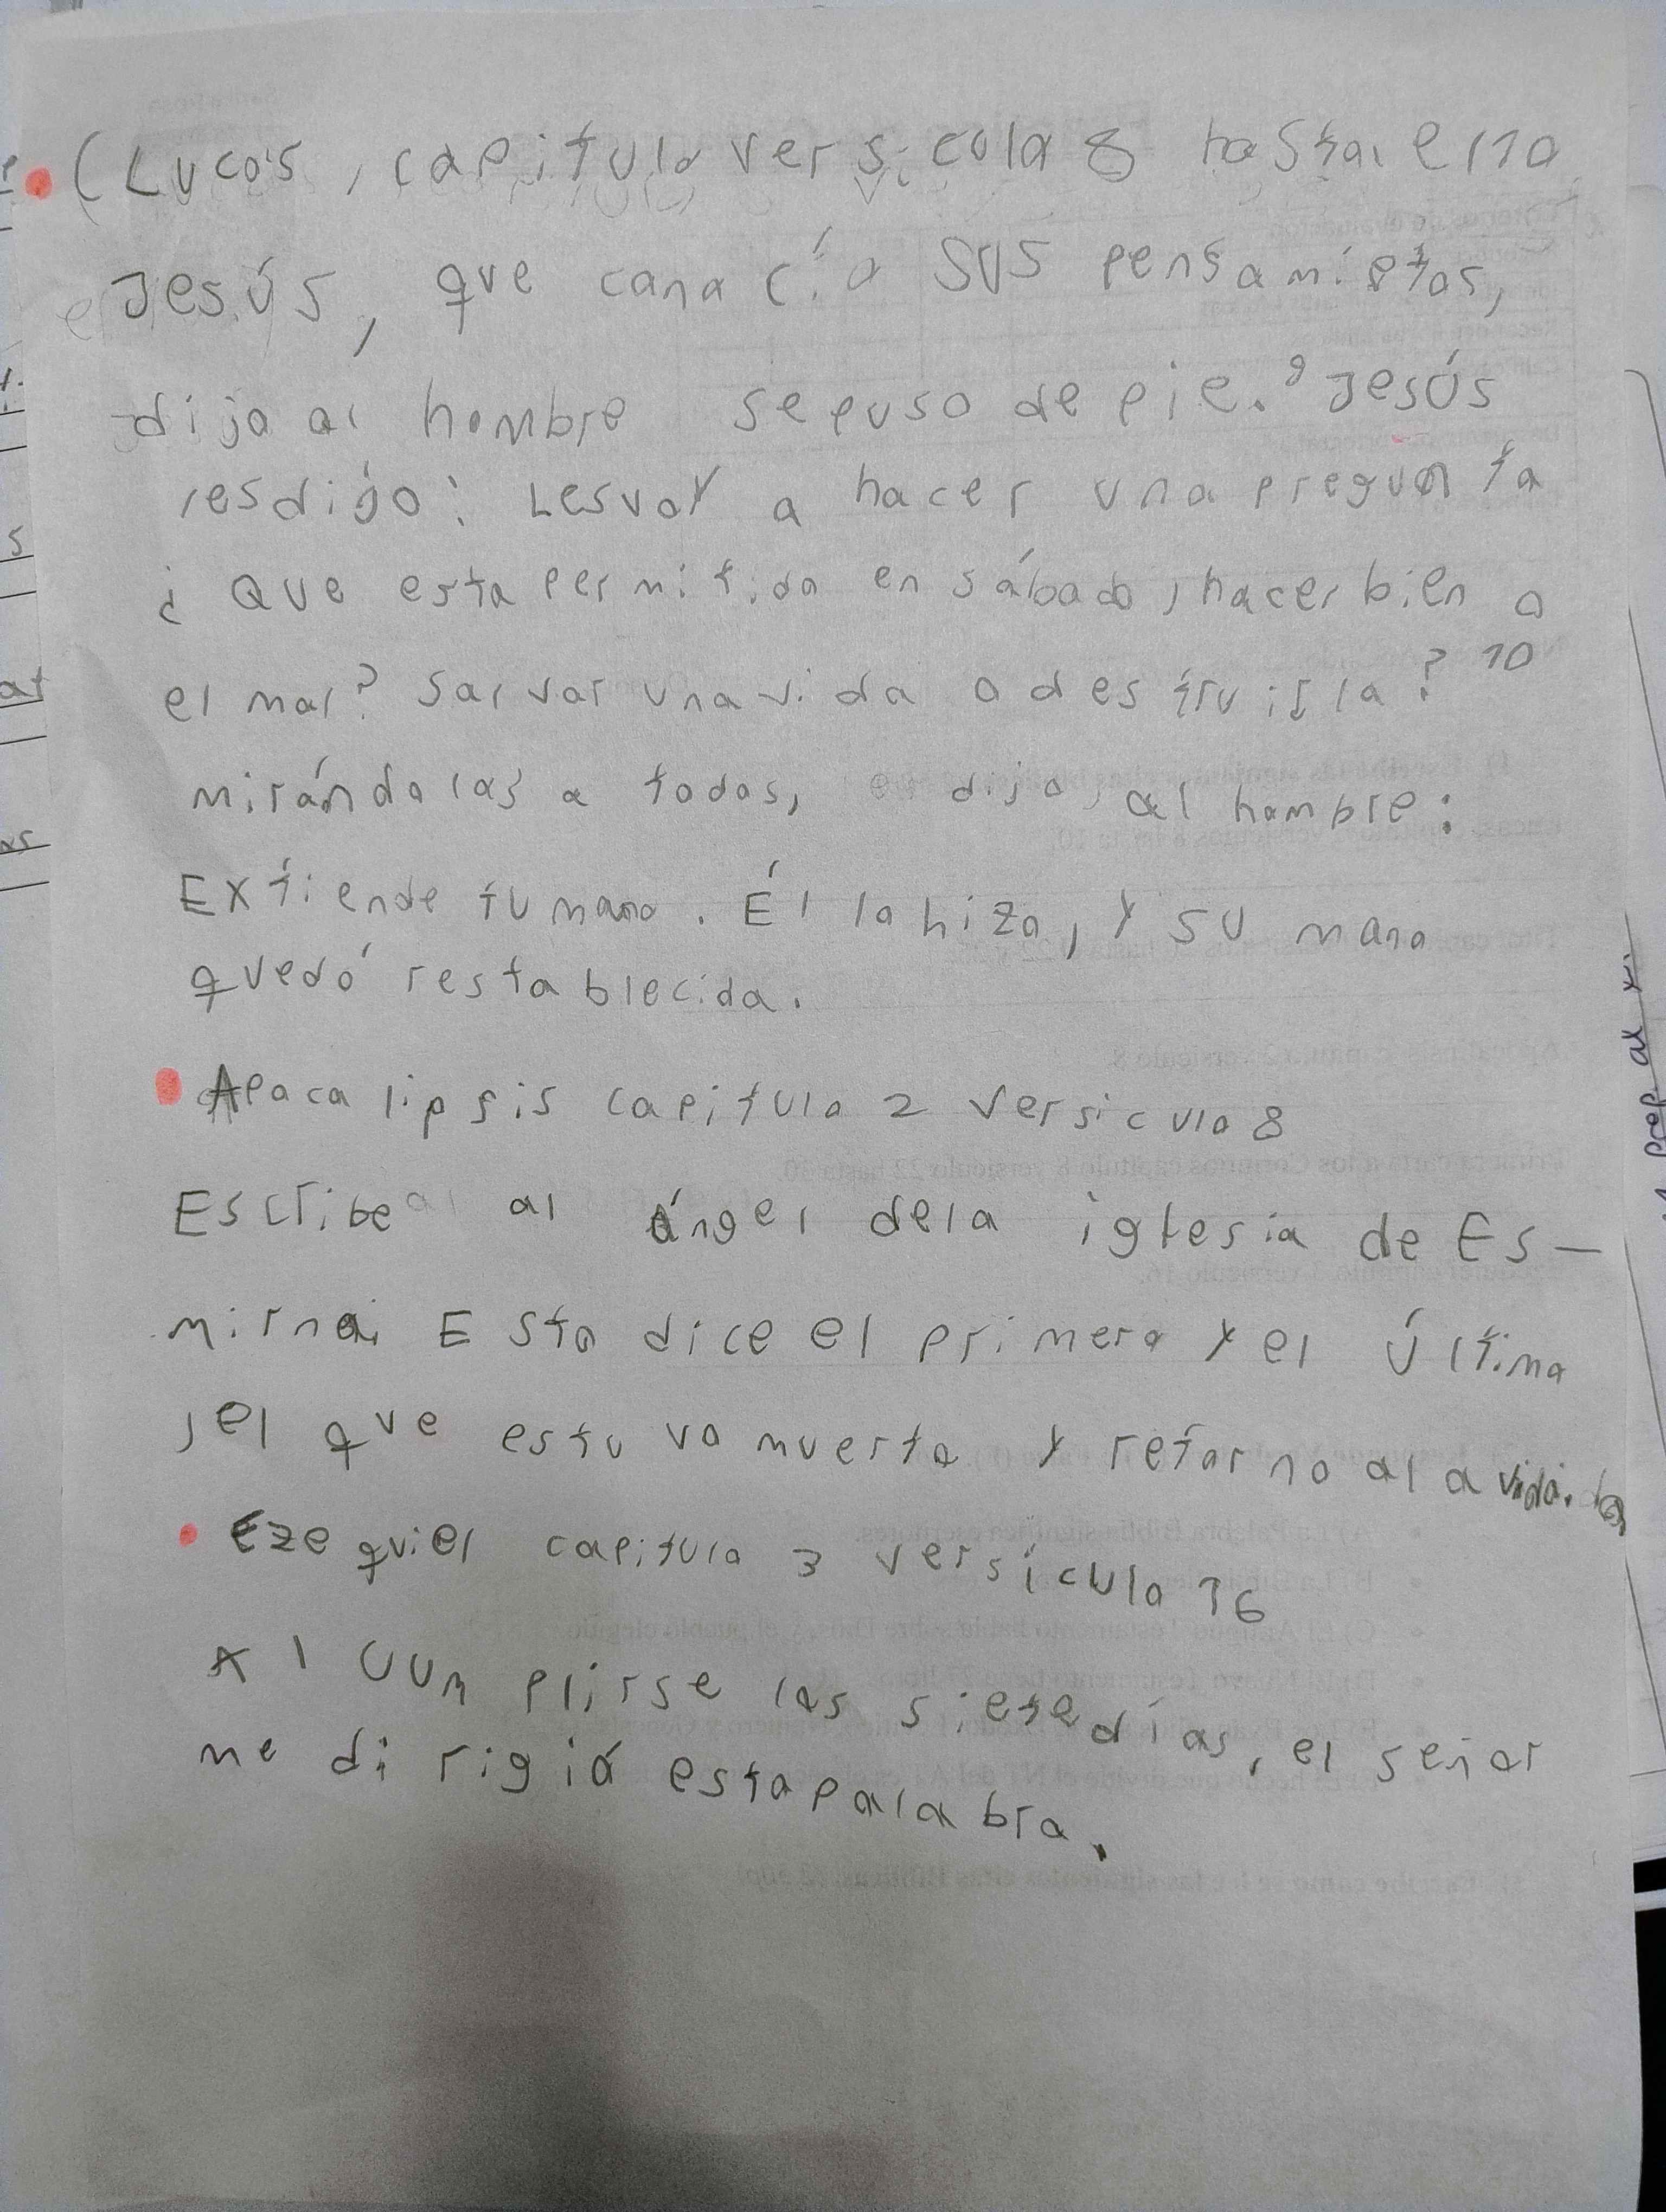 (Lucas, capitulo versicola 8 hasta el 10
Jesús, que conocía sus pensamietos,
dijo al hombre se puso de pie. 9 Jesús
les dijo: Les voy a hacer una pregunta
¿Que esta permitido en sábado, hacer bien o
el mal? Salvar una vida o destruirla? 10
mirándolos a todos, dijo al hombre:
Extiende tu mano. Él lo hizo, y su mano
quedó restablecida.
Apocalipsis capitulo 2 versiculo 8
Escribe al ángel de la iglesia de Es-
mirna: Esto dice el primero y el último
, el que estuvo muerto y retorno a la vida.
Ezequiel capitulo 3 versículo 16
Al cumplirse los siete días, el señor
me dirigió esta palabra.